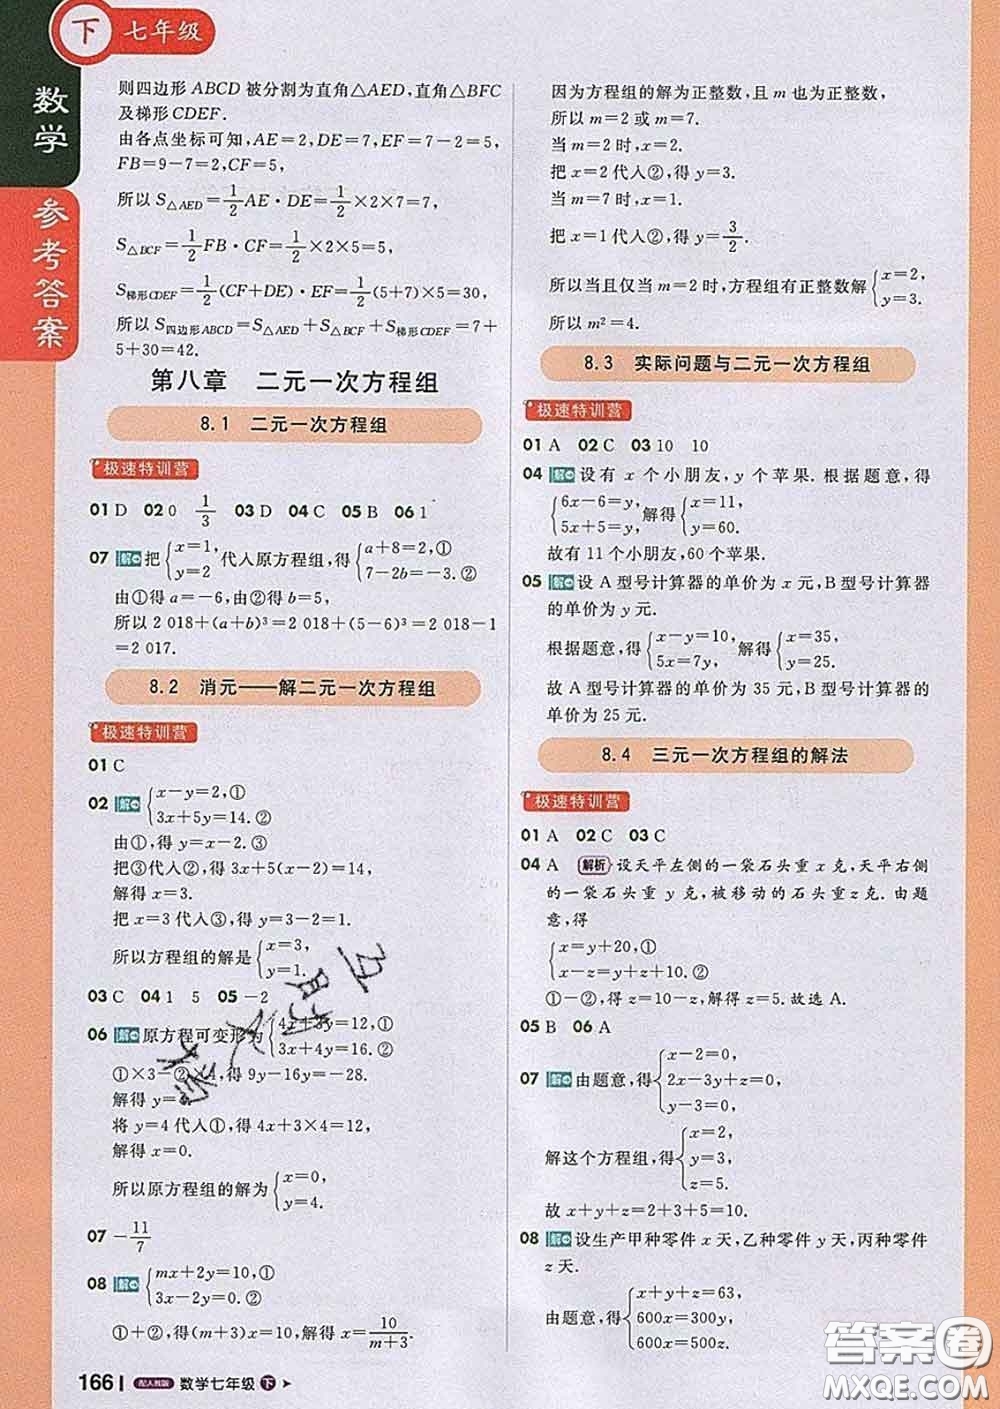 下 七年级
数学
参考答案
则四边形ABCD被分割为直角△AED,直角△BFC
及梯形CDEF.
由各点坐标可知,AE=2,DE=7,EF=7-2=5,
FB=9-7=2,CF=5,
所以S△AED=1/2AE·DE=1/2×2×7=7,
S△BCF=1/2FB·CF=1/2×2×5=5,
S梯形CDEF=1/2(CF+DE)·EF=1/2(5+7)×5=30,
所以S四边形ABCD=S△AED+S△BCF+S梯形CDEF=7+
5+30=42.
第八章 二元一次方程组
8.1 二元一次方程组
极速特训营
01 D 02 0 1/3 03 D 04 C 05 B 06 1
07 解 把{x=1, y=2 代入原方程组,得{a+8=2,① 7-2b=-3.②
由①得a=-6,由②得b=5,
所以2 018+(a+b)³=2 018+(5-6)³=2 018-1
=2 017.
8.2 消元——解二元一次方程组
极速特训营
01 C
02 解 {x-y=2,① 3x+5y=14.②
由①,得x=y+2.③
把③代入②,得3x+5(x-2)=14.
解得x=3.
把x=3代入③,得y=3-2=1.
所以方程组的解是{x=3, y=1.
03 C 04 1 5 05 -2
06 解 原方程可变形为{4x+3y=12,① 3x+4y=16.②
①×3-②×4,得9y-16y=-28.
解得y=4.
将y=4代入①,得4x+3×4=12,
解得x=0.
所以原方程组的解为{x=0, y=4.
07 -11/7
08 解 {mx+2y=10,① 3x-2y=0.②
①+②,得(m+3)x=10,解得x=10/(m+3).
166 配人教版 数学七年级 下
因为方程组的解为正整数,且m也为正整数,
所以m=2或m=7.
当m=2时,x=2.
把x=2代入②,得y=3.
当m=7时,x=1.
把x=1代入②,得y=3/2.
所以当且仅当m=2时,方程组有正整数解{x=2, y=3.
所以m²=4.
8.3 实际问题与二元一次方程组
极速特训营
01 A 02 C 03 10 10
04 解 设有x个小朋友,y个苹果.根据题意,得
{6x-6=y, 5x+5=y, 解得{x=11, y=60.
故有11个小朋友,60个苹果.
05 解 设A型号计算器的单价为x元,B型号计算器
的单价为y元.
根据题意,得{x-y=10, 5x=7y, 解得{x=35, y=25.
故A型号计算器的单价为35元,B型号计算器的
单价为25元.
8.4 三元一次方程组的解法
极速特训营
01 A 02 C 03 C
04 A 解析 设天平左侧的一袋石头重x克,天平右侧
的一袋石头重y克,被移动的石头重z克.由题
意,得
{x=y+20,① x-z=y+z.②
①-②,得z=10-z,解得z=5.故选A.
05 B 06 A
07 解 由题意,得{x-2=0, 2x-3y+z=0, y-3=0,
解这个方程组,得{x=2, y=3, z=5.
故x+y+z=2+3+5=10.
08 解 设生产甲种零件x天,乙种零件y天,丙种零件
z天.
由题意,得{x+y+z=63, 600x=300y, 600x=500z.
答案圈
MXQE.COM